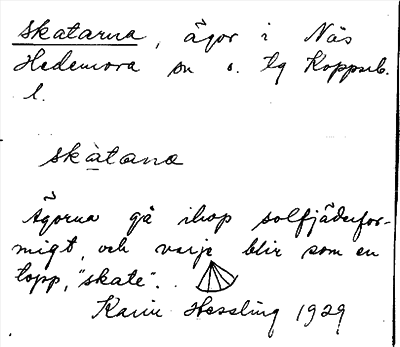 skatarna, ägor i Näs
Hedemora sn o. tg Koppub.
l.
skàtana
Ägorna gå ihop solfjäderfor-
migt, och varje blir som en
topp, "skate". .
Karin Hessling 1929